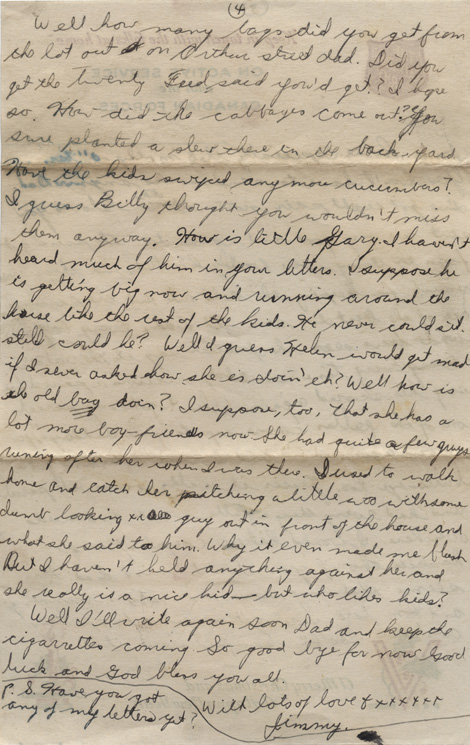 (4)
Well how many bags did you get from
the lot out on Arthur street dad. Did you
get the twenty Fred said you'd get? I hope
so. How did the cabbages come out? You
sure planted a slew there in the back yard
Have the kids swiped any more cucumbers?
I guess Billy thought you wouldn't miss
them anyway. How is little Gary. I haven't
heard much of him in your letters. I suppose he
is getting big now and running around the
house like the rest of the kids. He never could sit
still could he? Well I guess Helen would get mad
if I never asked how she is doin' eh? Well how is
the old bag doin? I suppose, too, that she has a
lot more boy-friends now She had quite a few guys
runing after her when I was there. I used to walk
home and catch her pitching a little woo with some
dumb looking guy out in front of the house and
what she said to him. Why it even made me blush
But I haven't held anything against her, and
she really is a nice kid - but who likes kids?
Well I'll write again soon Dad and keep the
cigarettes coming So good bye for now Good
luck and God bless you all.
With lots of love & xxxxxx
Jimmy.
P.S. Have you got
any of my letters yet?